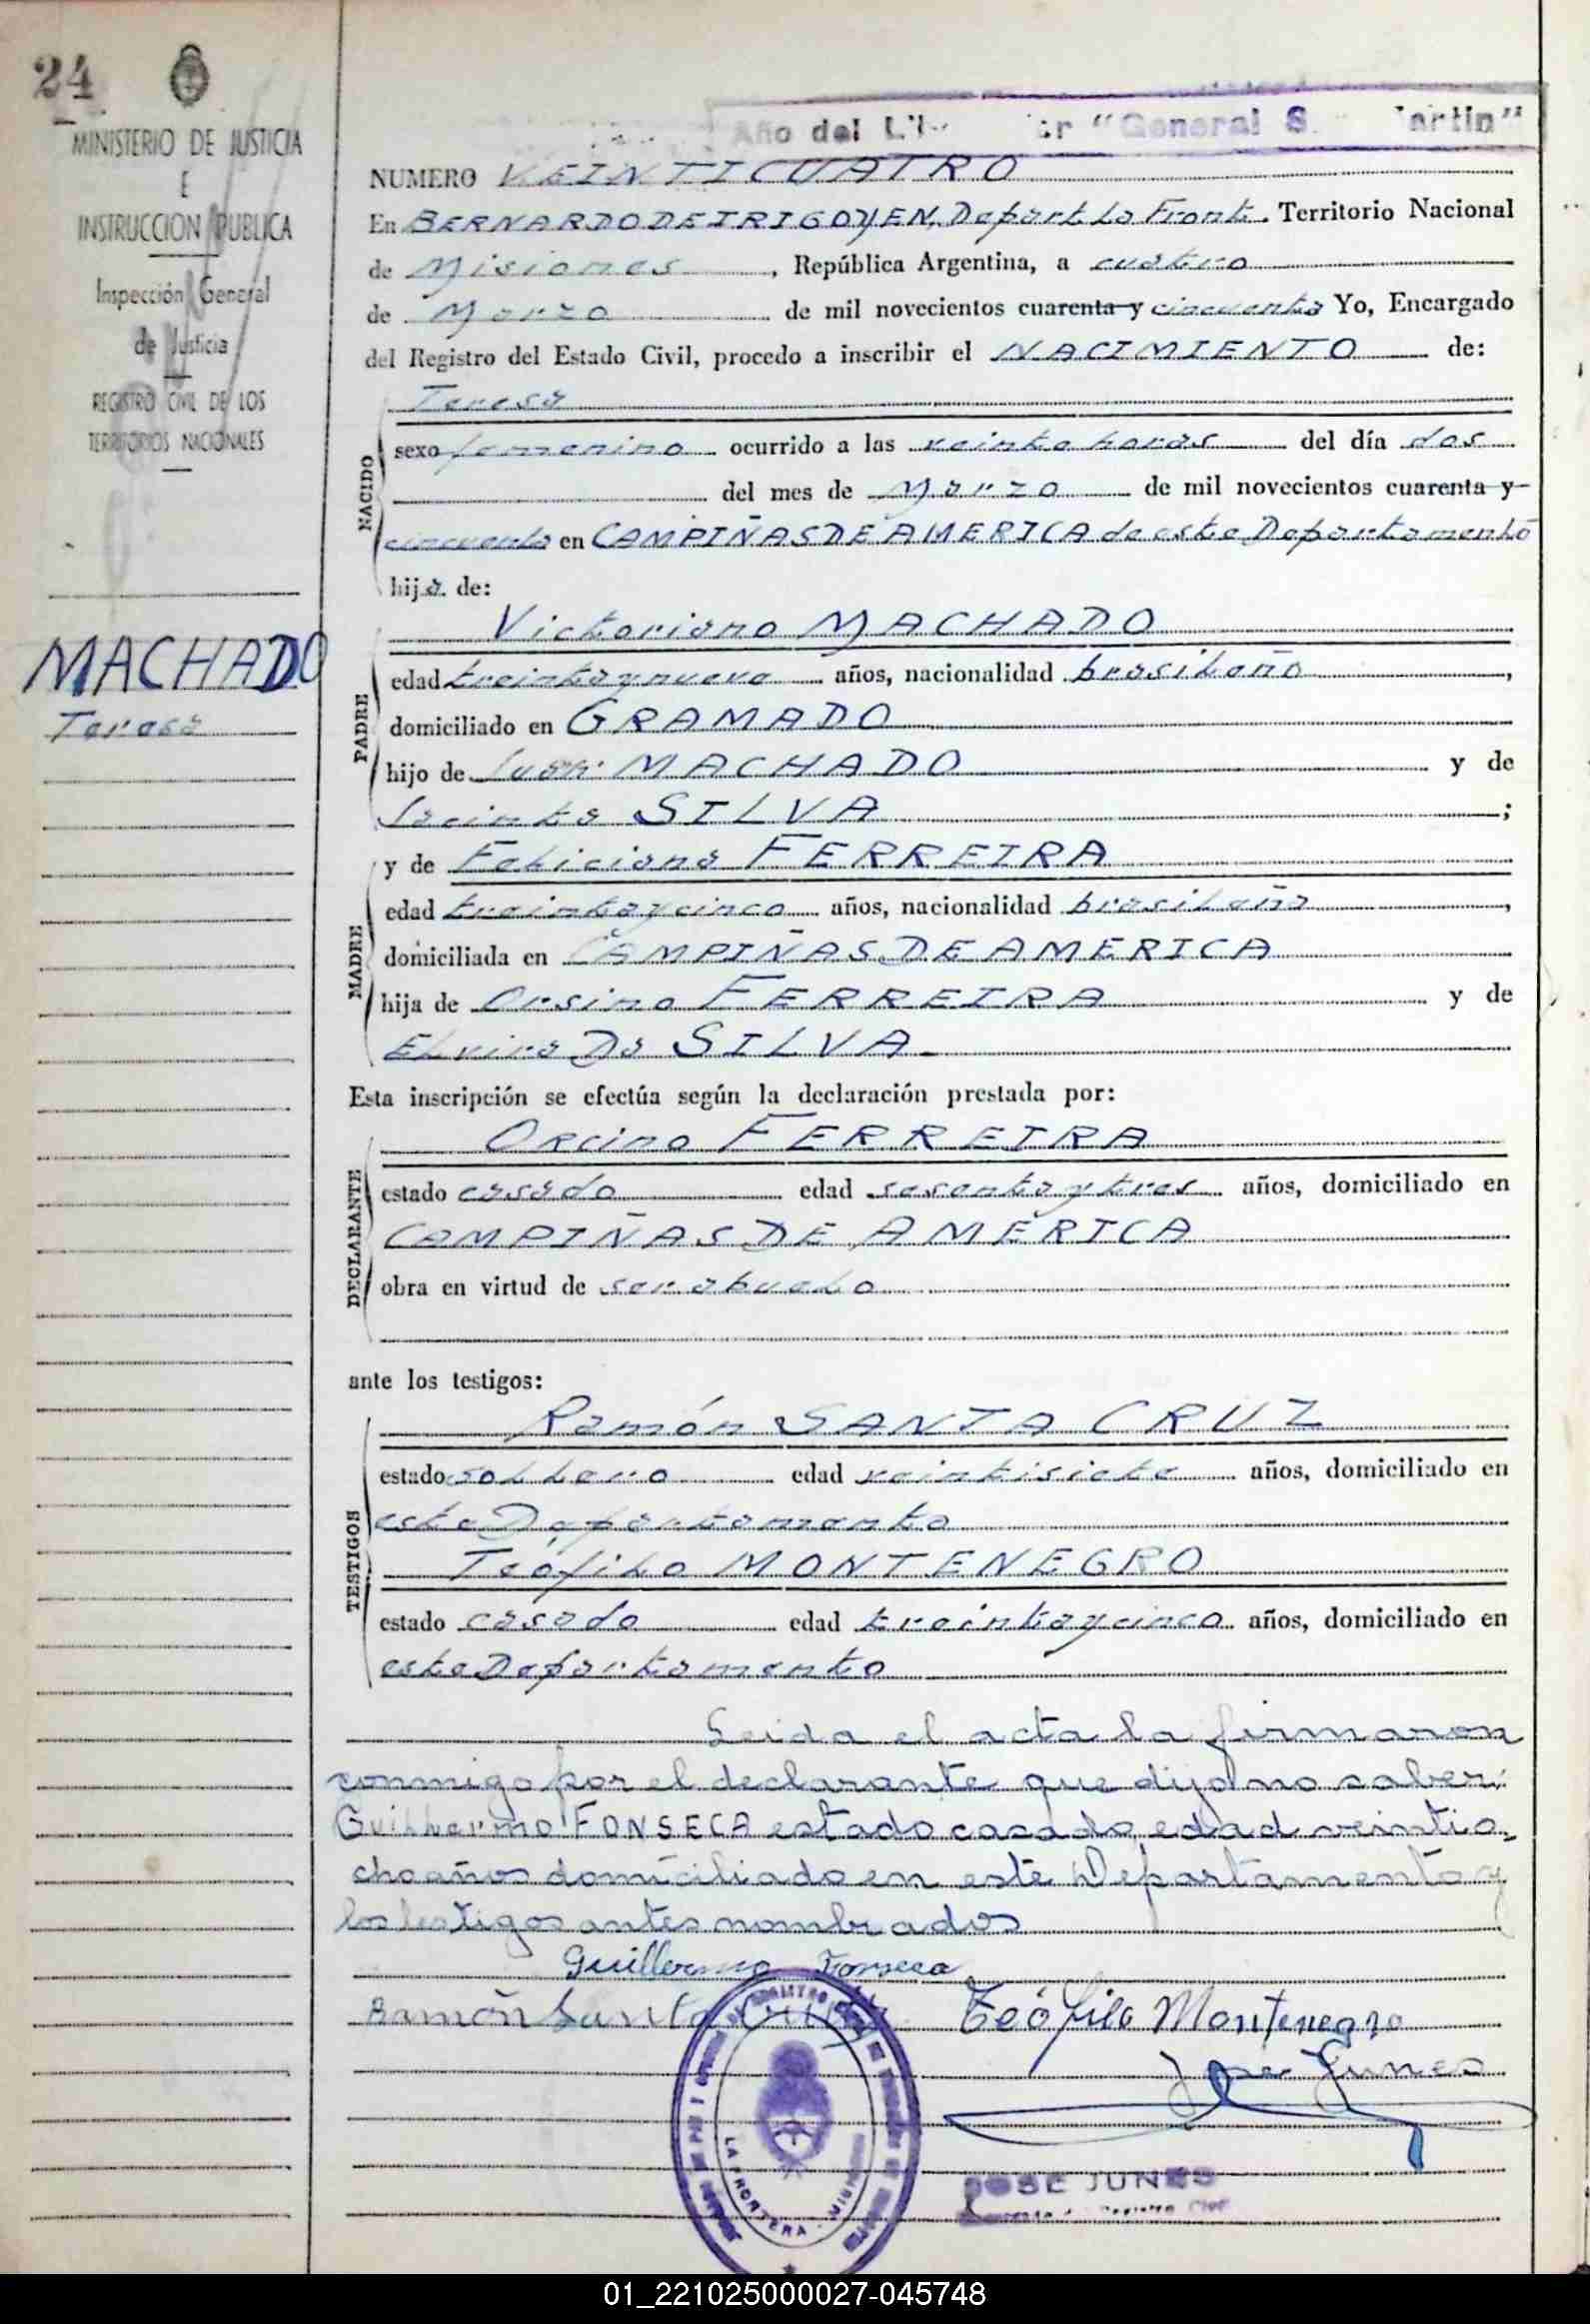 24
MINISTERIO DE JUSTICIA
E
INSTRUCCION PUBLICA
Inspección General
de Justicia
REGISTRO CIVIL DE LOS
TERRITORIOS NACIONALES
MACHADO
Teresa
Año del "General S artin"
NUMERO VEINTICUATRO
En BERNARDO DE IRIGOYEN, Depart La Front. Territorio Nacional
de Misiones, República Argentina, a cuatro
de Marzo de mil novecientos cuarenta y cincuenta Yo, Encargado
del Registro del Estado Civil, procedo a inscribir el NACIMIENTO de:
Teresa
NACIDO
sexo femenino ocurrido a las veinte horas del día dos
del mes de Marzo de mil novecientos cuarenta y
cincuenta en CAMPIÑAS DE AMERICA de este Departamento
hija de:
Victoriano MACHADO
PADRE
edad treinta y nueve años, nacionalidad brasileño,
domiciliado en GRAMADO
hijo de Juan MACHADO y de
Jacinta SILVA;
y de Feliciana FERREIRA
MADRE
edad treinta y cinco años, nacionalidad brasileña,
domiciliada en CAMPIÑAS DE AMERICA
hija de Orsino FERREIRA y de
Elvira Da SILVA
Esta inscripción se efectúa según la declaración prestada por:
Orcino FERREIRA
DECLARANTE
estado casado edad sesenta y tres años, domiciliado en
CAMPIÑAS DE AMERICA
obra en virtud de ser abuelo
ante los testigos:
Ramón SANTA CRUZ
TESTIGOS
estado soltero edad veintisiete años, domiciliado en
este Departamento
Teófilo MONTENEGRO
estado casado edad treinta y cinco años, domiciliado en
este Departamento
Leida el acta la firmaron
conmigo por el declarante que dijo no saber:
Guillermo FONSECA estado casado, edad veintio-
cho años domiciliado en este Departamento y
los testigos antes nombrados
Guillermo Fonseca
Ramón Santa Cruz Teófilo Montenegro
Jose Junes
LA FRONTERA - MISIONES
JOSE JUNES
01_221025000027-045748